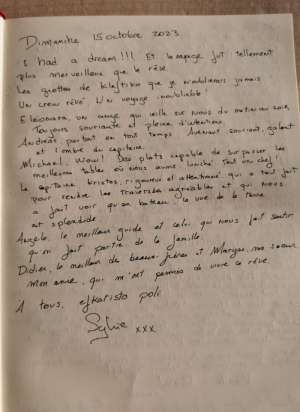 Dimanche 15 octobre 2023
I had a dream!!! Et le voyage fut tellement
plus merveilleux que le rêve
Les grottes de Kleftiko que je n'oublierai jamais
Un creux rêvé Un voyage inoubliable!
Eleonora, un ange qui veille sur nous du matin au soir,
Toujours souriante et pleine d'attentions
Andreas partout en tout temps Avenant souriant, galant
et l'ombre du capitaine.
Michael, Wouw! Des plats capable de surpasser les
meilleures tables où nous avons lunché Tout un chef!
Le capitaine Kristos, rigoureux et attentionné qui a tout fait
pour rendre les traversées agréables et qui nous
a fait voir qu'en bateau la vue de la terre
est splendide
Angelo, le meilleur guide et celui qui nous fait sentir
qu'on fait partie de la famille
Didier, le meilleur des beaux-frères et Maryse, ma soeur
mon amie, qui m'ont permis de vivre ce rêve.
A tous, efkaristo poli
Sylvie xxx